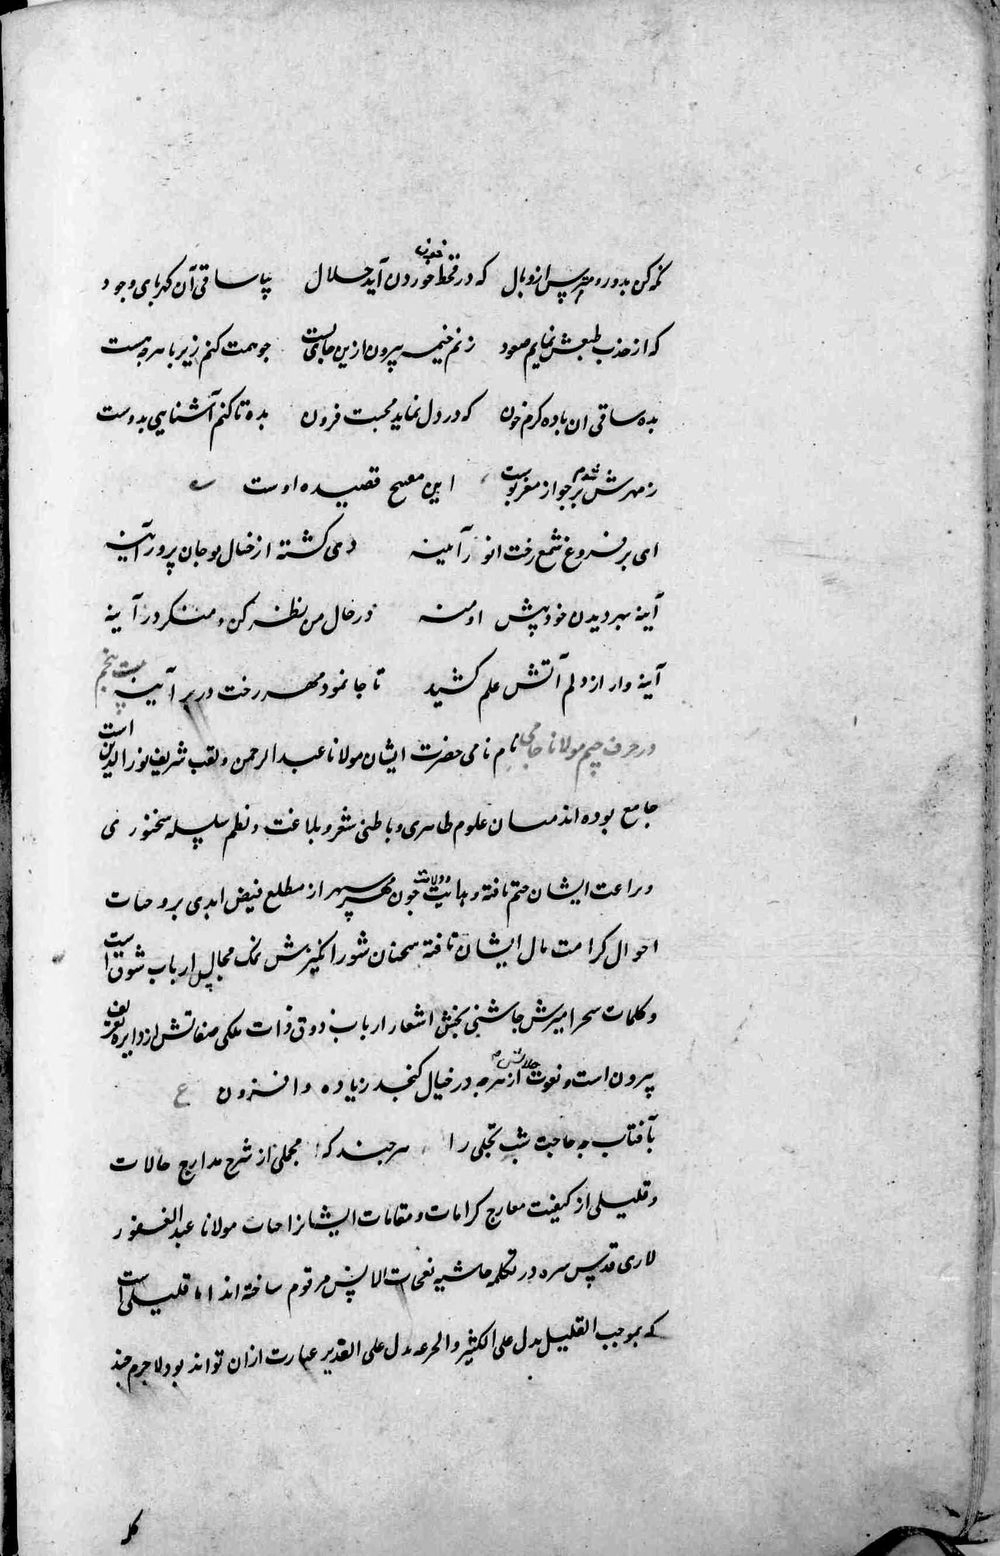 که کن بدور و مترس از وبال که در قحط خون خوردن آید حلال بیا ساقی آن کهربای وجود
که از جذب طبعش نمایم صعود زنم خیمه بیرون ازین جای پست چو همت کنم زیر پا هرچه هست
بده ساقی ان باده کرم خون که در دل نماید محبت فزون بده تا کنم آشنایی بدوست
ز مهرش شدم بر جواز مغز پوست این مصرع قصیده اوست
ای بر فروغ شمع رخت انور آینه دمی کشته از خیال تو جان پرور آینه
آینه بهر دیدن خود پیش او منه در حال من نظر کن و منکر در آینه
آینه وار از دلم آتش علم کشید تا جا نمود مهر رخت در بر آینه بیت پنجم
در حرف جیم مولانا جامی نام نامی حضرت ایشان مولانا عبد الرحمن و لقب شریف نور الدین است
جامع بوده اند میان علوم ظاهری و باطنی شعر و بلاغت و نظم سلسله سخنوری
و براعت ایشان ختم یافته و هدایت و ولایت چون مهر سپهر از مطلع فیض ابدی بر وجنات
احوال کرامت مال ایشان تافته سخنان شور انکیزش نمک مجالس ارباب شوق است
و کلمات سحر امیزش چاشنی بخش اشعار ارباب ذوق ذات ملکی صفاتش از دایره تعریف
بیرون است و نعوت جلالتش از هرچه در خیال کنجد زیاده و افزون ع
بآفتاب چه حاجت شب تجلی را هر چند که مجملی از شرح مدارج حالات
و قلیلی از کیفیت معارج کرامات و مقامات ایشانرا جناب مولانا عبد الغفور
لاری قدس سره در تکمله حاشیه نفحات الانس مرقوم ساخته اند اما قلیلی است
که بموجب القلیل یدل علی الکثیر والجرعه یدل علی الغدیر عبارت ازان تواند بود لاجرم چند